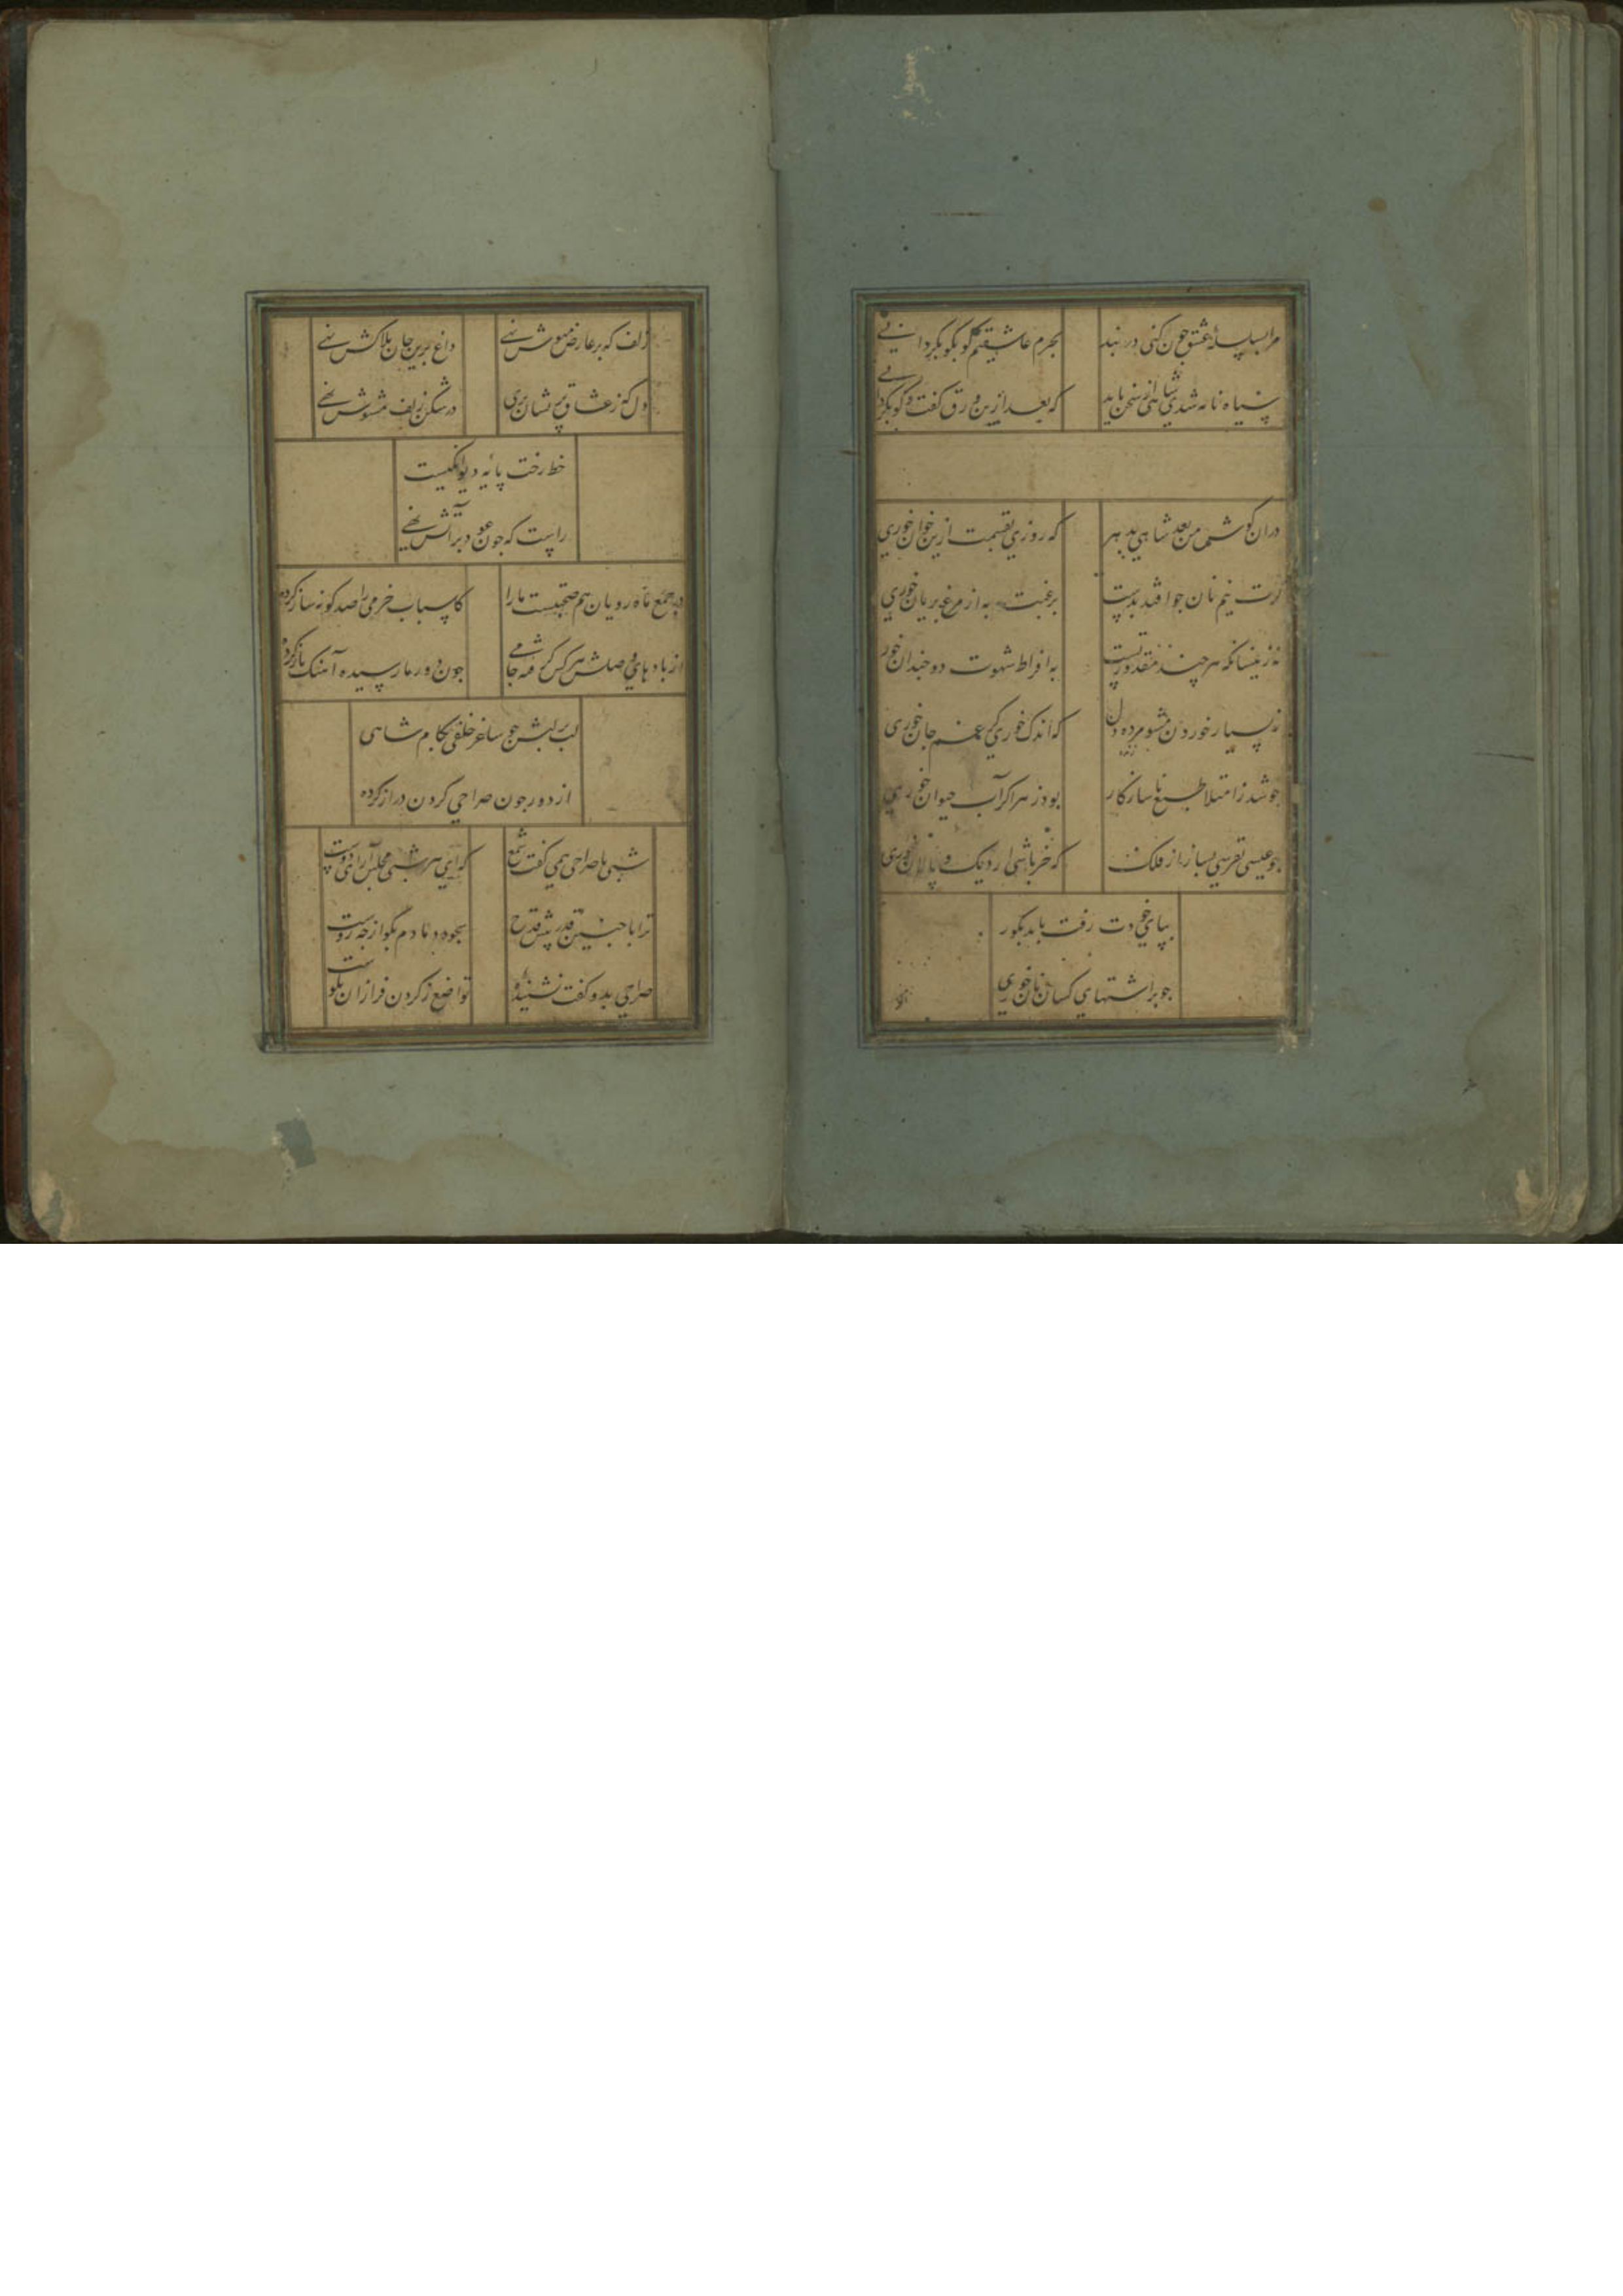 مرا بسلسلهٔ عشق چون کنی در بند
بجرم عاشقیم کو بکو بکردانی
سیاه نامه شدی شاهی از سخن باید
که بعد ازین ورق گفت و گو بکردانی
دران کوش من بعد شاهی بدهر
که روزی بقسمت ازین خوان خوری
کرت نیم نان جو افتد بدست
برغبت به از مرغ بریان خوری
نه زینسانکه هر چند مقدور تست
به افراط شهوت دو چندان خوری
ز بسیار خوردن مشو مرده دل
که اندک خوری کر غم جان خوری
جو شد ز امتلا طبع ناسازکار
بود زهر اکر آب حیوان خوری
جو عیسی بقرصی بساز از فلک
که خر باشی ار دیک و پالان خوری
بپای خودت رفت باید بکور
جو بر اشتهای کسان نان خوری
زلف که بر عارض مهوش نهی
داغ برین جان بلاکش نهی
دل که ز عشاق پریشان بری
در شکن زلف مشوش نهی
خط رخت پایه دیوانکیست
راست که جون عود بر آتش نهی
در جمع ماه رویان هم صحبتیست ما را
کاسباب خرمی را صد کونه ساز کرده
از باده‌های وصلش هر کس کرفته جامی
جون دور ما رسیده آهنک باز کرده
لب بر لبش جو ساغر خلقی بکام شاهی
از دور جون صراحی کردن دراز کرده
شبی با صراحی همی کفت شمع
که ای هر شبی مجلس آرای دوست
ترا با جنین قدر پیش قدح
سجود دمادم بکو از جه روست
صراحی بدو کفت نشنیدهٔ
تواضع ز کردن فرازان نکوست